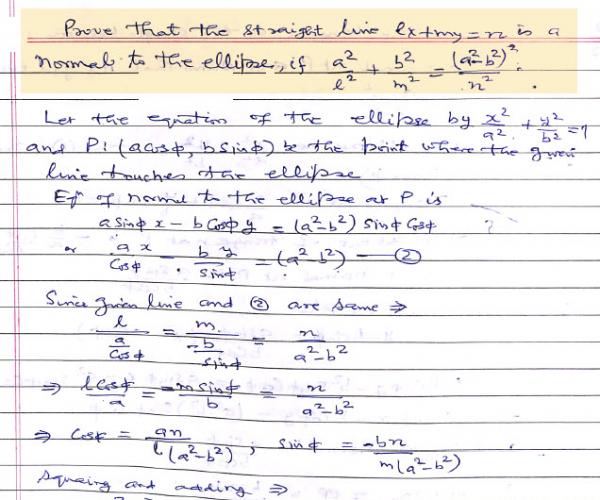 Prove that the straight line lx+my=n is a
normal to the ellipse, if a²/l² + b²/m² = (a²-b²)²/n².
Let the equation of the ellipse by x²/a² + y²/b² = 1
and P: (acosφ, bsinφ) be the point where the given
line touches the ellipse
Eqⁿ of normal to the ellipse at P is
a sinφ x - b cosφ y = (a²-b²) sinφ cosφ ?
or ax/cosφ - by/sinφ = (a²-b²) — ②
Since given line and ② are same ⇒
l/(a/cosφ) = m/(-b/sinφ) = n/(a²-b²)
⇒ lcosφ/a = -msinφ/b = n/(a²-b²)
⇒ cosφ = an/l(a²-b²); sinφ = -bn/m(a²-b²)
Squaring and adding ⇒